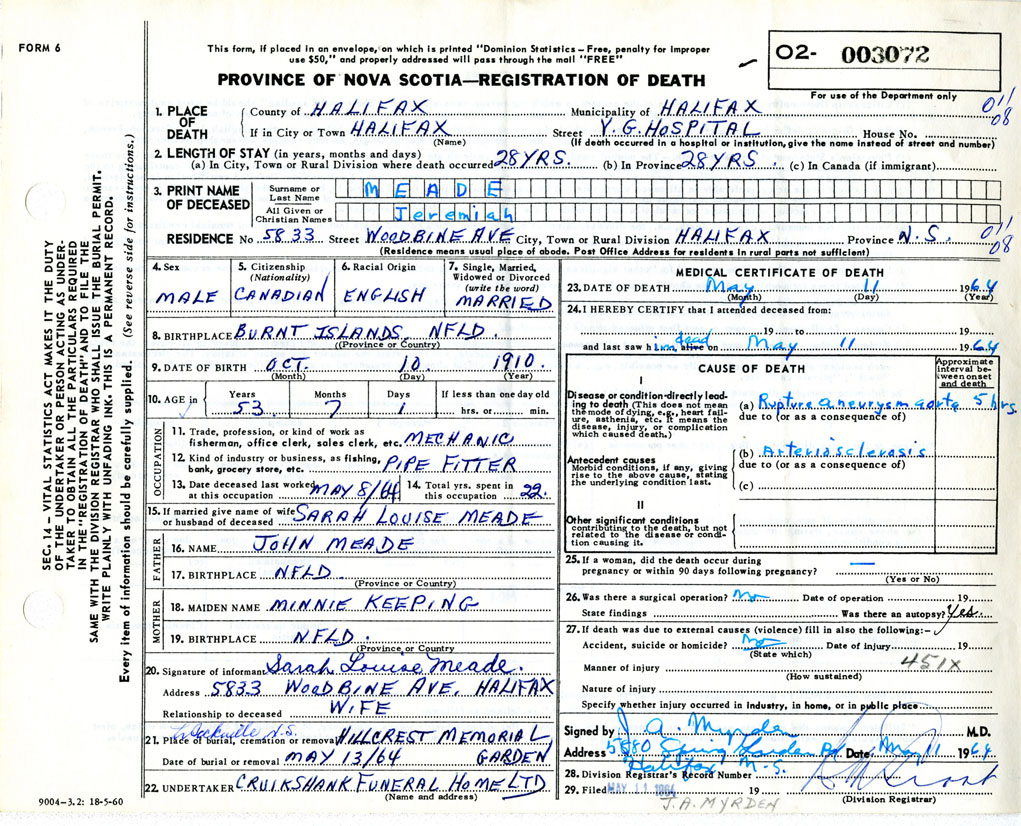 FORM 6
This form, if placed in an envelope, on which is printed "Dominion Statistics – Free, penalty for improper
use $50," and properly addressed will pass through the mail "FREE"
PROVINCE OF NOVA SCOTIA—REGISTRATION OF DEATH
02- 003072
For use of the Department only
SEC. 14 – VITAL STATISTICS ACT MAKES IT THE DUTY
OF THE UNDERTAKER OR PERSON ACTING AS UNDER-
TAKER TO OBTAIN ALL THE PARTICULARS REQUIRED
IN THE "REGISTRATION OF DEATH" AND TO FILE THE
SAME WITH THE DIVISION REGISTRAR WHO SHALL ISSUE THE BURIAL PERMIT.
WRITE PLAINLY WITH UNFADING INK. THIS IS A PERMANENT RECORD.
Every item of information should be carefully supplied. (See reverse side for instructions.)
1. PLACE OF DEATH
County of HALIFAX Municipality of HALIFAX 011
08
If in City or Town HALIFAX Street V.G. HOSPITAL House No.
(Name) (If death occurred in a hospital or institution, give the name instead of street and number)
2. LENGTH OF STAY (in years, months and days)
(a) In City, Town or Rural Division where death occurred 28 YRS. (b) In Province 28 YRS. (c) In Canada (if immigrant)
3. PRINT NAME OF DECEASED
Surname or Last Name MEADE
All Given or Christian Names Jeremiah
RESIDENCE No 5833 Street WOODBINE AVE City, Town or Rural Division HALIFAX Province N.S. 011
08
(Residence means usual place of abode. Post Office Address for residents in rural parts not sufficient)
4. Sex
MALE
5. Citizenship (Nationality)
CANADIAN
6. Racial Origin
ENGLISH
7. Single, Married, Widowed or Divorced (write the word)
MARRIED
8. BIRTHPLACE BURNT ISLANDS NFLD.
(Province or Country)
9. DATE OF BIRTH OCT. 10 1910.
(Month) (Day) (Year)
10. AGE in Years Months Days If less than one day old
53 7 1 hrs. or min.
OCCUPATION
11. Trade, profession, or kind of work as
fisherman, office clerk, sales clerk, etc. MECHANIC
12. Kind of industry or business, as fishing,
bank, grocery store, etc. PIPE FITTER
13. Date deceased last worked at this occupation MAY 8/64
14. Total yrs. spent in this occupation 22.
15. If married give name of wife
or husband of deceased SARAH LOUISE MEADE
FATHER
16. NAME JOHN MEADE
17. BIRTHPLACE NFLD.
(Province or Country)
MOTHER
18. MAIDEN NAME MINNIE KEEPING
19. BIRTHPLACE NFLD.
(Province or Country
20. Signature of informant Sarah Louise Meade.
Address 5833 WOODBINE AVE. HALIFAX
Relationship to deceased WIFE
Sackville N.S.
21. Place of burial, cremation or removal HILLCREST MEMORIAL
GARDEN
Date of burial or removal MAY 13/64
22. UNDERTAKER CRUIKSHANK FUNERAL HOME LTD
(Name and address)
9004–3.2: 18-5-60
MEDICAL CERTIFICATE OF DEATH
23. DATE OF DEATH May 11 1964
(Month) (Day) (Year)
24. I HEREBY CERTIFY that I attended deceased from:
19 to 19
and last saw him alive on dead May 11 1964
CAUSE OF DEATH
Approximate interval between onset and death
I
Disease or condition directly lead-
ing to death (This does not mean
the mode of dying, e.g., heart fail-
ure, asthenia, etc. It means the
disease, injury, or complication
which caused death.)
(a) Rupture aneurysm aorta 5 hrs.
due to (or as a consequence of)
Antecedent causes
Morbid conditions, if any, giving
rise to the above cause, stating
the underlying condition last.
(b) Arteriosclerosis
due to (or as a consequence of)
(c)
II
Other significant conditions
contributing to the death, but not
related to the disease or condi-
tion causing it.
25. If a woman, did the death occur during
pregnancy or within 90 days following pregnancy? —
(Yes or No)
26. Was there a surgical operation? No Date of operation 19
State findings Was there an autopsy? Yes.
27. If death was due to external causes (violence) fill in also the following:–
Accident, suicide or homicide? No Date of injury 19
(State which)
Manner of injury 451X
(How sustained)
Nature of injury
Specify whether injury occurred in industry, in home, or in public place
Signed by J. A. Myrden M.D.
Address 5880 Spring Garden Rd Date May 11 1964
Halifax N.S.
28. Division Registrar's Record Number
29. Filed MAY 11 1964
(Division Registrar)
J.A. MYRDEN